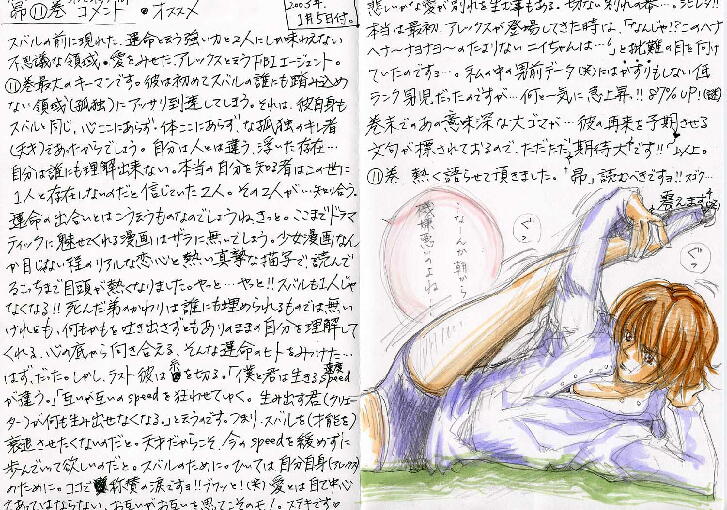 昴⑪巻 コメント ・オススメ
2003年.
1月5日付。
スバルの前に現れた、運命と云う強い力と2人にしか味わえない
不思議な領域。愛をみせたアレックスと云うFBIエージェント。
⑪巻最大のキーマンです。彼は初めてスバルの誰にも踏み込め
ない領域(孤独)にアッサリ到達してしまう。それは、彼自身も
スバルと同じ、心ここにあらず・体ここにあらず、な孤独のキレ者
(天才)であったからでしょう。自分は人とは違う、浮いた存在…
自分は誰にも理解出来ない。本当の自分を知る者はこの世に
1人と存在しないのだと信じていた2人。その2人が…知り合う。
運命の出会いとはこう云うものなのでしょうね、きっと。ここまでドラマ
ティックに魅せてくれる漫画はザラに無いでしょう。少女漫画なん
か目じゃない程のリアルな恋心と熱い真摯な描写で、読んで
るこっちまで目頭が熱くなりました。やっと…やっと!!スバルも1人じゃ
なくなる!!死んだ弟のかわりは誰にも埋められるものでは無い
けれども、何もかもを吐き出さずともありのままの自分を理解して
くれる、心の底から向き合える、そんな運命のヒトをみつけた…
はず、だった。しかし、ラスト彼は糸を切る。「僕と君は生きる速度speed
が違う。」「互いが互いのspeedを狂わせてゆく。生み出す君(クリエ
ーター)が何も生み出せなくなる。」と云うのです。つまり、スバルを(才能を)
衰退させたくないのだと。天才だからこそ、今のspeedを緩めずに
歩んでいって欲しいのだと。スバルのために。ひいては自分自身(アレックス)
のために。ココで称賛の涙ですヨ!!ブワッと!(笑)愛とは自己中心
であってはならない、お互いがお互いを思ってこそのモノ。ステキです♡
悲しいかな愛が別れを生む事もある。切ない別れの巻…。
本当は最初、アレックスが登場してきた時は、「なんじゃ!?このヘナ
ヘナ〜ナヨナヨ〜のたよりないニイちゃんは…」と批難の目を向け
ていたのですヨ…。私の中の男前データ(笑)にはかすりもしない低
ランク男児だったのですが…何と一気に急上昇!!87%UP!(謎)
巻末でのあの意味深な大ゴマが…彼の再来を予期させる
文句が標されておるので、ただただ『期待大』です!!以上。
⑪巻 熱く語らせて頂きました。「昴」読むべきですヨ!!
震えます
なーんか朝から
機嫌悪いのよねー!
ぐっ
ぐっ